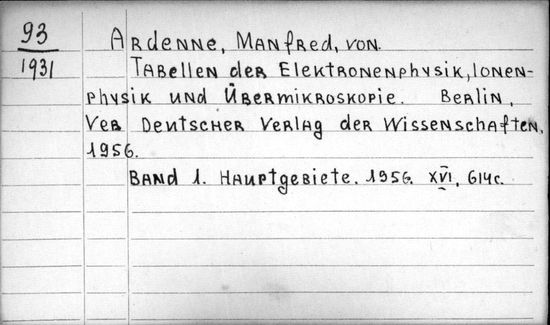 93
1931
Ardenne, Manfred, von.
Tabellen der Elektronenphysik, Ionen-
physik und Übermikroskopie. Berlin,
Veb Deutscher Verlag der Wissenschaften,
1956.
Band 1. Hauptgebiete. 1956. XVI, 614c.